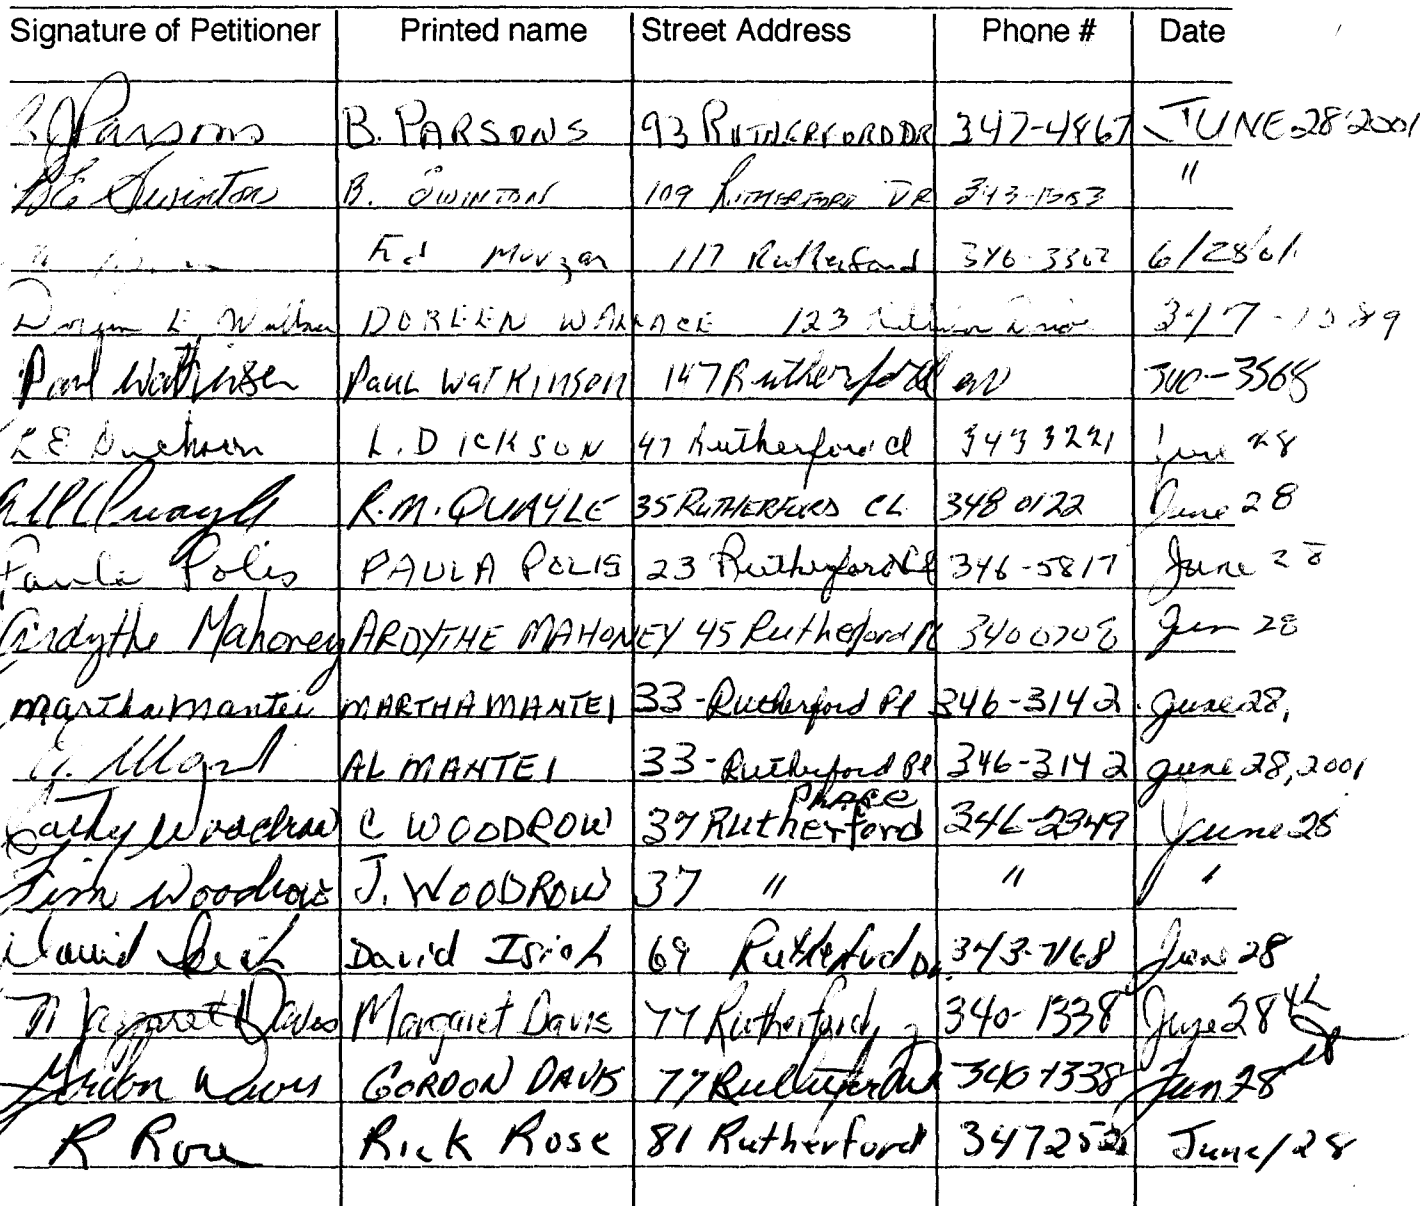 Signature of Petitioner Printed name Street Address Phone # Date
BJParsons B. PARSONS 93 RUTHERFORD DR 347-4867 JUNE 28 2001
BE Swinton B. SWINTON 109 RUTHERFORD DR 343-1353 "
Ed Morgan 117 Rutherford 346-3302 6/28/01
Doreen E Wallace DOREEN WALLACE 123 Drive 347-1389
Paul Watkinson PAUL WATKINSON 147 Rutherford -3568
L E Dickson L. DICKSON 47 Rutherford Cl 343 3221 June 28
RM Quayle R.M. QUAYLE 35 RUTHERFORD CL 348 0122 June 28
Paula Polis PAULA POLIS 23 Rutherford Cl 346-5817 June 28
Ardythe Mahoney ARDYTHE MAHONEY 45 Rutherford Pl 340 0708 Jun 28
Martha Mantei MARTHA MANTEI 33-Rutherford Pl 346-3142 June 28,
AL MANTEI 33-Rutherford Pl 346-3142 June 28, 2001
Cathy Woodrow C WOODROW 37 Rutherford PLACE 346-2349 June 28
Jim Woodrow J. WOODROW 37 " " "
David Isiah David Isiah 69 Rutherford Dr. 343-7168 June 28
Margaret Davis Margaret Davis 77 Rutherford 340-1338 June 28th
Gordon Davis GORDON DAVIS 77 Rutherford 340-1338 Jun 28th
R Rose Rick Rose 81 Rutherford 347252 June/28